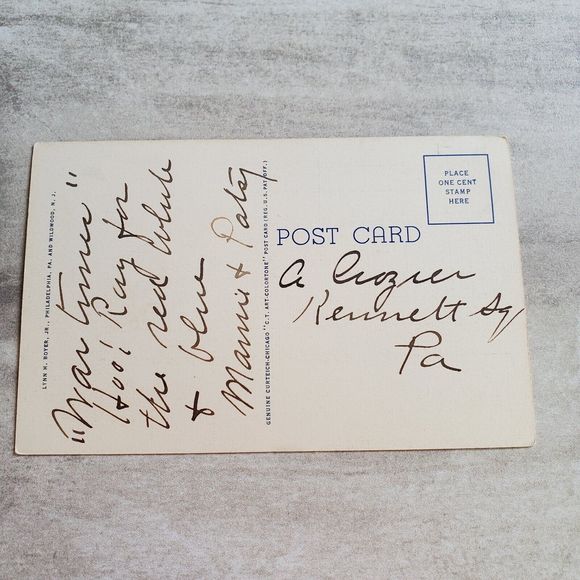 LYNN H. BOYER, JR., PHILADELPHIA, PA. AND WILDWOOD, N. J.
"War times"
Hoo! Ray for
the red White
& blue
Mamie & Patsy
GENUINE CURTEICH-CHICAGO "C.T. ART-COLORTONE" POST CARD (REG. U.S. PAT. OFF.)
POST CARD
PLACE
ONE CENT
STAMP
HERE
A Crozier
Kennett Sq
Pa